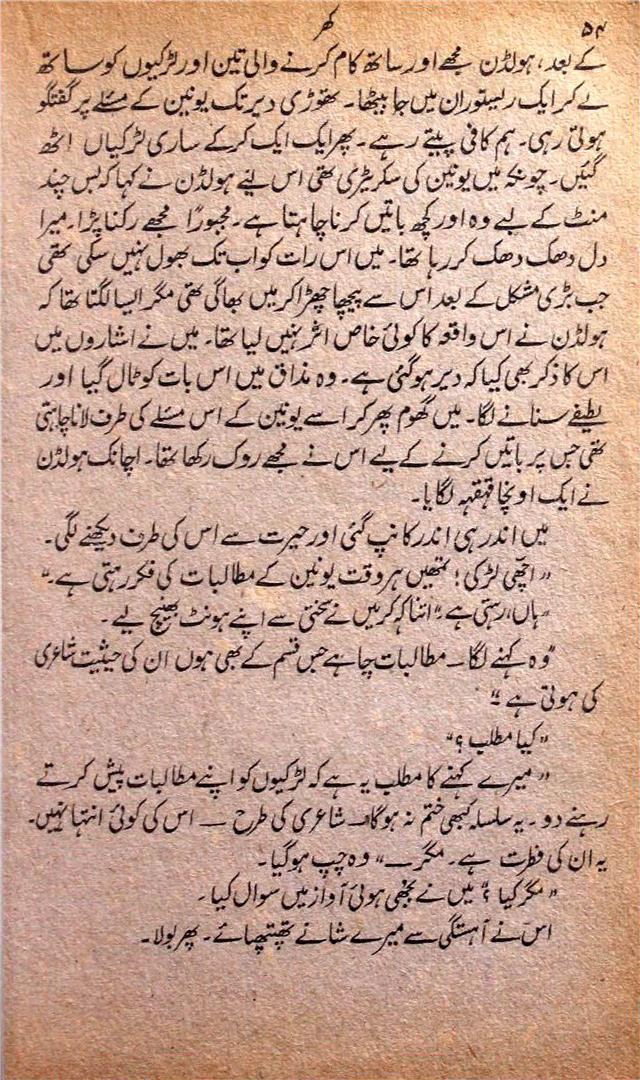 ۵۴
کہر
کے بعد، ہولڈن مجھے اور ساتھ کام کرنے والی تین اور لڑکیوں کو ساتھ
لے کر ایک ریستوران میں جا بیٹھا۔ تھوڑی دیر تک یونین کے مسئلے پر گفتگو
ہوتی رہی۔ ہم کافی پیتے رہے۔ پھر ایک ایک کر کے ساری لڑکیاں اٹھ
گئیں۔ چونکہ میں یونین کی سکریٹری تھی اس لیے ہولڈن نے کہا کہ بس چند
منٹ کے لیے وہ اور کچھ باتیں کرنا چاہتا ہے۔ مجبوراً مجھے رکنا پڑا۔ میرا
دل دھک دھک کر رہا تھا۔ میں اس رات کو اب تک بھول نہیں سکی تھی
جب بڑی مشکل کے بعد اس سے پیچھا چھڑا کر میں بھاگی تھی مگر ایسا لگتا تھا کہ
ہولڈن نے اس واقعہ کا کوئی خاص اثر نہیں لیا تھا۔ میں نے اشاروں میں
اس کا ذکر بھی کیا کہ دیر ہو گئی ہے۔ وہ مذاق میں اس بات کو ٹال گیا اور
لطیفے سنانے لگا۔ میں گھوم پھر کر اسے یونین کے اس مسئلے کی طرف لانا چاہتی
تھی جس پر باتیں کرنے کے لیے اس نے مجھے روک رکھا تھا۔ اچانک ہولڈن
نے ایک اونچا قہقہہ لگایا۔
میں اندر ہی اندر کانپ گئی اور حیرت سے اس کی طرف دیکھنے لگی۔
”اچھی لڑکی! تمھیں ہر وقت یونین کے مطالبات کی فکر رہتی ہے۔“
”ہاں، رہتی ہے“ اتنا کہہ کر میں نے سختی سے اپنے ہونٹ بھینچ لیے۔
”وہ کہنے لگا — مطالبات چاہے جس قسم کے بھی ہوں ان کی حیثیت شاعری
کی ہوتی ہے“
”کیا مطلب؟“
”میرے کہنے کا مطلب یہ ہے کہ لڑکیوں کو اپنے مطالبات پیش کرتے
رہنے دو۔ یہ سلسلہ کبھی ختم نہ ہو گا — شاعری کی طرح — اس کی کوئی انتہا نہیں۔
یہ ان کی فطرت ہے۔ مگر —“ وہ چپ ہو گیا۔
”مگر کیا؟“ میں نے بجھی ہوئی آواز میں سوال کیا۔
اس نے آہستگی سے میرے شانے تھپتھپائے۔ پھر بولا۔